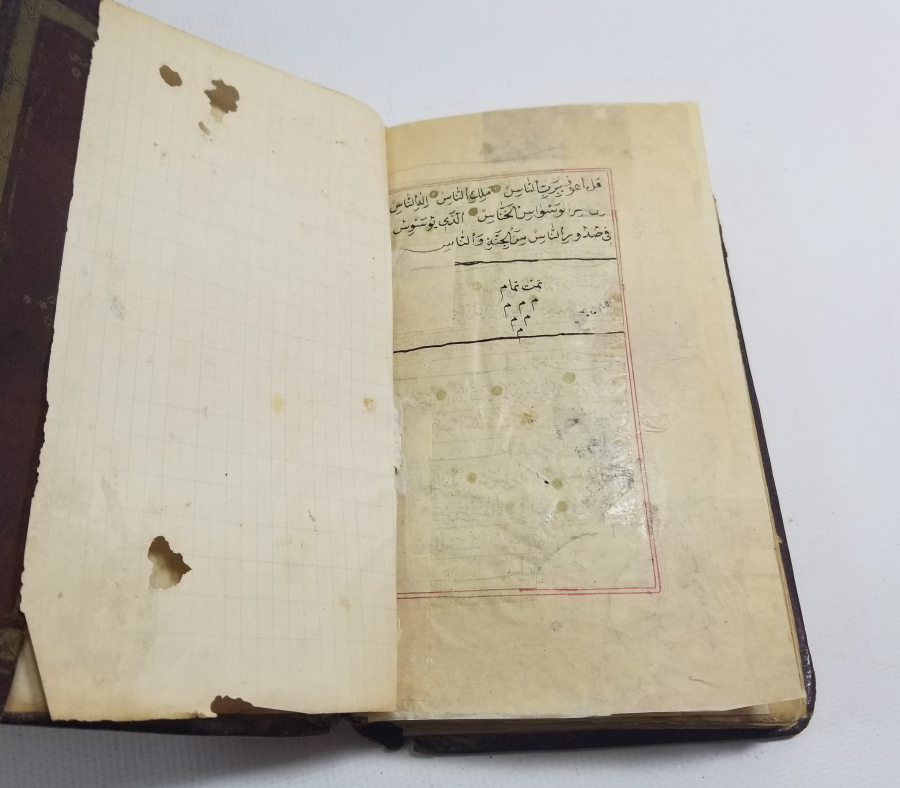 قل اعوذ بِرَبِّ النّاس مَلِكِ النّاس اِلهِ النّاس
من شر الوَسْوَاس الخَنّاس الّذى يُوَسْوِسُ
فى صُدُورِ النّاس مِنَ الجِنَّةِ وَالنّاس
تمت تمام
م م م
م م
م